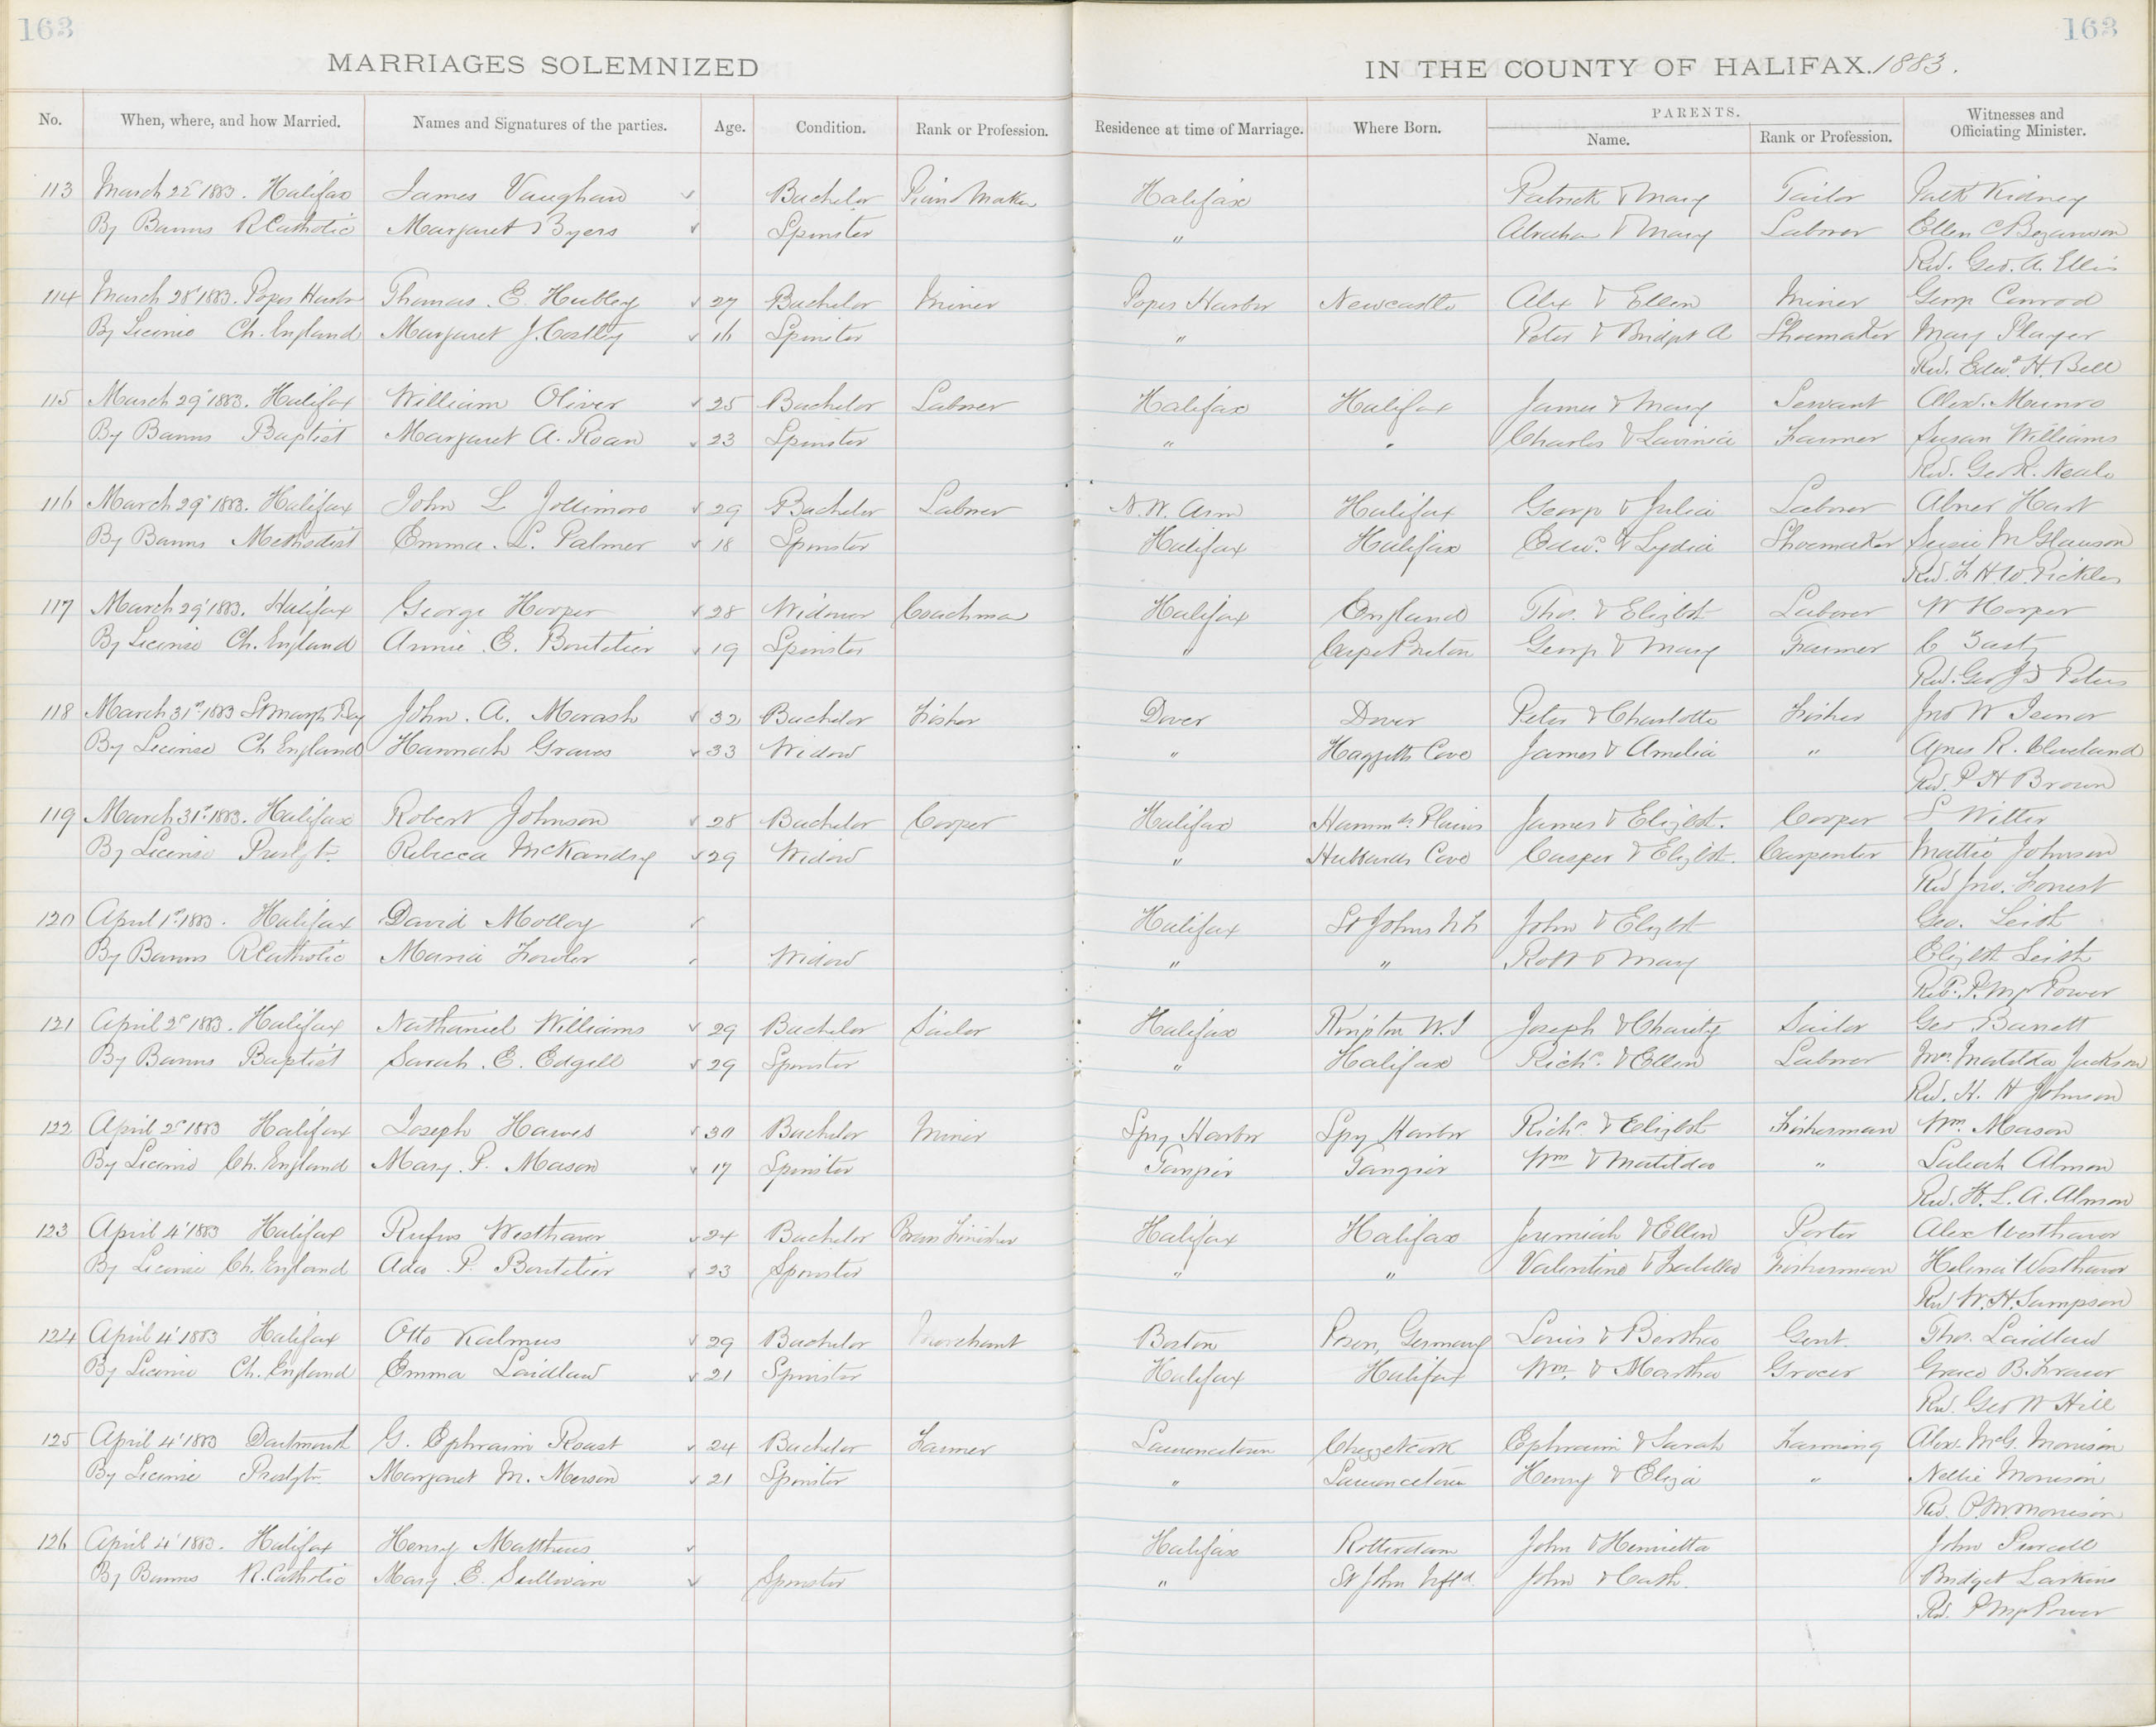 163
163
MARRIAGES SOLEMNIZED
IN THE COUNTY OF HALIFAX. 1883.
No. When, where, and how Married. Names and Signatures of the parties. Age. Condition. Rank or Profession. Residence at time of Marriage. Where Born. PARENTS. Name. Rank or Profession. Witnesses and Officiating Minister.
113 March 22 1883. Halifax James Vaughan Bachelor Piano Maker Halifax Patrick & Mary Tailor Patk Kidney
By Banns R Catholic Margaret Byers Spinster " Abraham & Mary Laborer Ellen C
Rev. Geo. A. Ellis
114 March 28 1883. Popes Harbr Thomas E. Hubley 27 Bachelor Miner Popes Harbor Newcastle Alex & Ellen Miner George Conrod
By License Ch. England Margaret J. Costley 16 Spinster " Peter & Bridget A Shoemaker Mary Player
Rev. Edwd H. Bell
115 March 29 1883. Halifax William Oliver 25 Bachelor Laborer Halifax Halifax James & Mary Servant Alexr. Munro
By Banns Baptist Margaret A. Roan 23 Spinster " " Charles & Lavinia Farmer Susan Williams
Rev. Geo R. Neale
116 March 29 1883. Halifax John L Jollimore 29 Bachelor Laborer N.W. Arm Halifax George & Julia Laborer Abner Hart
By Banns Methodist Emma. L. Palmer 18 Spinster Halifax Halifax Edwd. & Lydia Shoemaker Susie M Glawson
Rev. F H W. Pickles
117 March 29 1883. Halifax George Hooper 28 Widower Coachman Halifax England Thos. & Elizbth Laborer W Hooper
By License Ch. England Annie E. Boutelier 19 Spinster " Cape Breton George & Mary Farmer C
Rev. Geo Peters
118 March 31st 1883 St Margts Bay John. A. Morash 32 Bachelor Fisher Dover Dover Peter & Charlotte Fisher Jno W Isenor
By License Ch England Hannah Graves 33 Widow " Haggetts Cove James & Amelia " Agnes R. Cleveland
Rev. P H Brown
119 March 31st 1883. Halifax Robert Johnson 28 Bachelor Cooper Halifax Hammds. Plains James & Elizbt. Cooper S Witter
By License Presbytn Rebecca McKandsy 29 Widow " Hubbards Cove Casper & Elizbt. Carpenter Mattie Johnson
Rev Jno. Forrest
120 April 1st 1883. Halifax David Molloy Halifax St Johns N F John & Elizbt Geo. Leish
By Banns R Catholic Maria Fowler Widow " " Robt & Mary Elizbth Leish
P. Power
121 April 2d 1883. Halifax Nathaniel Williams 29 Bachelor Sailor Halifax Kingston W. I Joseph & Charity Sailor Geo Barrett
By Banns Baptist Sarah. E. Edgill 29 Spinster " Halifax Richd. & Ellen Laborer Mrs. Matilda Jackson
Rev. H. H Johnson
122 April 2d 1883 Halifax Joseph Hawes 30 Bachelor Miner Spry Harbor Spry Harbor Richd. & Elizbt Fisherman Wm. Mason
By License Ch. England Mary. P. Mason 17 Spinster Tangier Tangier Wm & Matilda " Almon
Rev. H. L. A. Almon
123 April 4 1883 Halifax Rufus Westhaver 24 Bachelor Brass Finisher Halifax Halifax Jeremiah & Ellen Porter Alex Westhaver
By License Ch. England Ada. P. Boutelier 23 Spinster " " Valentine & Isabella Fisherman Helena Westhaver
Rev W. H. Sampson
124 April 4 1883 Halifax Otto Kalmus 29 Bachelor Merchant Boston Posen, Germany Louis & Bertha Gent. Thos. Laidlaw
By License Ch. England Emma Laidlaw 21 Spinster Halifax Halifax Wm. & Martha Grocer Grace B. Fraser
Rev. Geo W Hill
125 April 4 1883 Dartmouth G. Ephraim Roast 24 Bachelor Farmer Lawrencetown Chezzetcook Ephraim & Sarah Farming Alex. McG. Morrison
By License Presbytn Margaret M. Merson 21 Spinster " Lawrencetown Henry & Eliza " Nellie Morrison
Rev. P. M. Morrison
126 April 4 1883. Halifax Henry Matthews Halifax Rotterdam John & Henrietta John Purcell
By Banns R. Catholic Mary E. Sullivan Spinster " St John Nfld. John & Cath. Bridget Larkins
Rev. P Power